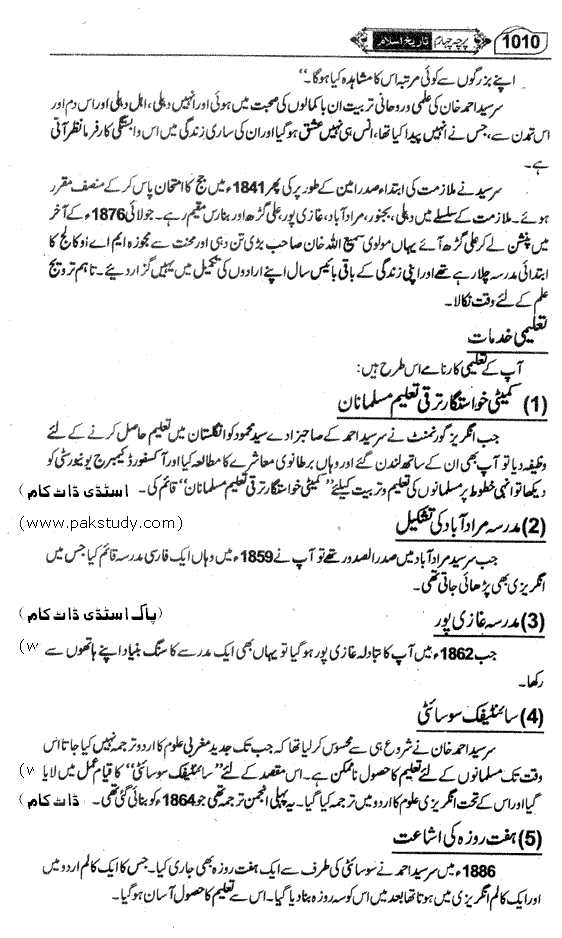 1010 پرچہ چہارم تاریخ اسلام
اپنے بزرگوں سے کوئی مرتبہ اس کا مشاہدہ کیا ہوگا۔“
سرسید احمد خان کی علمی و روحانی تربیت ان باکمالوں کی صحبت میں ہوئی اور انہیں دہلی، اہل دہلی اور اس دم اور
اس تمدن سے، جس نے انہیں پیدا کیا تھا، انس ہی نہیں عشق ہوگیا اور ان کی ساری زندگی میں اس وابستگی کار فرما نظر آتی
ہے۔
سرسید نے ملازمت کی ابتداء صدر امین کے طور پر کی پھر 1841ء میں جج کا امتحان پاس کرکے منصف مقرر
ہوئے۔ ملازمت کے سلسلے میں دہلی، بجنور، مراد آباد، غازی پور، علی گڑھ اور بنارس مقیم رہے۔ جولائی 1876ء کے آخر
میں پنشن لے کر علی گڑھ آئے یہاں مولوی سمیع اللہ خان صاحب بڑی تن دہی اور محنت سے مجوزہ ایم اے او کالج کا
ابتدائی مدرسہ چلا رہے تھے اور اپنی زندگی کے باقی بائیس سال اپنے ارادوں کی تکمیل میں یہیں گزار دیئے۔ تاہم ترویج
علم کے لئے وقت نکالا۔
تعلیمی خدمات
آپ کے تعلیمی کارنامے اس طرح ہیں:
(1) کمیٹی خواستگار ترقی تعلیم مسلمانان
جب انگریز گورنمنٹ نے سرسید احمد کے صاحبزادے سید محمود کو انگلستان میں تعلیم حاصل کرنے کے لئے
وظیفہ دیا تو آپ بھی ان کے ساتھ لندن گئے اور وہاں برطانوی معاشرے کا مطالعہ کیا اور آکسفورڈ کیمبرج یونیورسٹی کو
دیکھا تو انہی خطوط پر مسلمانوں کی تعلیم و تربیت کیلئے ”کمیٹی خواستگار ترقی تعلیم مسلمانان“ قائم کی۔ اسٹڈی ڈاٹ کام )
(2) مدرسہ مراد آباد کی تشکیل (www.pakstudy.com)
جب سرسید مراد آباد میں صدر الصدور تھے تو آپ نے 1859ء میں وہاں ایک فارسی مدرسہ قائم کیا جس میں
انگریزی بھی پڑھائی جاتی تھی۔
(3) مدرسہ غازی پور (پاک اسٹڈی ڈاٹ کام )
جب 1862ء میں آپ کا تبادلہ غازی پور ہوگیا تو یہاں بھی ایک مدرسے کا سنگ بنیاد اپنے ہاتھوں سے (w
رکھا۔
(4) سائنٹیفک سوسائٹی
سرسید احمد خان نے شروع ہی سے محسوس کر لیا تھا کہ جب تک جدید مغربی علوم کا اردو ترجمہ نہیں کیا جاتا اس
وقت تک مسلمانوں کے لئے تعلیم کا حصول ناممکن ہے۔ اس مقصد کے لئے ”سائنٹیفک سوسائٹی“ کا قیام عمل میں لایا
گیا اور اس کے تحت انگریزی علوم کا اردو میں ترجمہ کیا گیا۔ یہ پہلی انجمن ترجمہ تھی جو 1864ء کو بنائی گئی تھی۔ ڈاٹ کام )
(5) ہفت روزہ کی اشاعت
1886ء میں سرسید احمد نے سوسائٹی کی طرف سے ایک ہفت روزہ بھی جاری کیا۔ جس کا ایک کالم اردو میں
اور ایک کالم انگریزی میں ہوتا تھا بعد میں اس کو سہ روزہ بنا دیا گیا۔ اس سے تعلیم کا حصول آسان ہوگیا۔